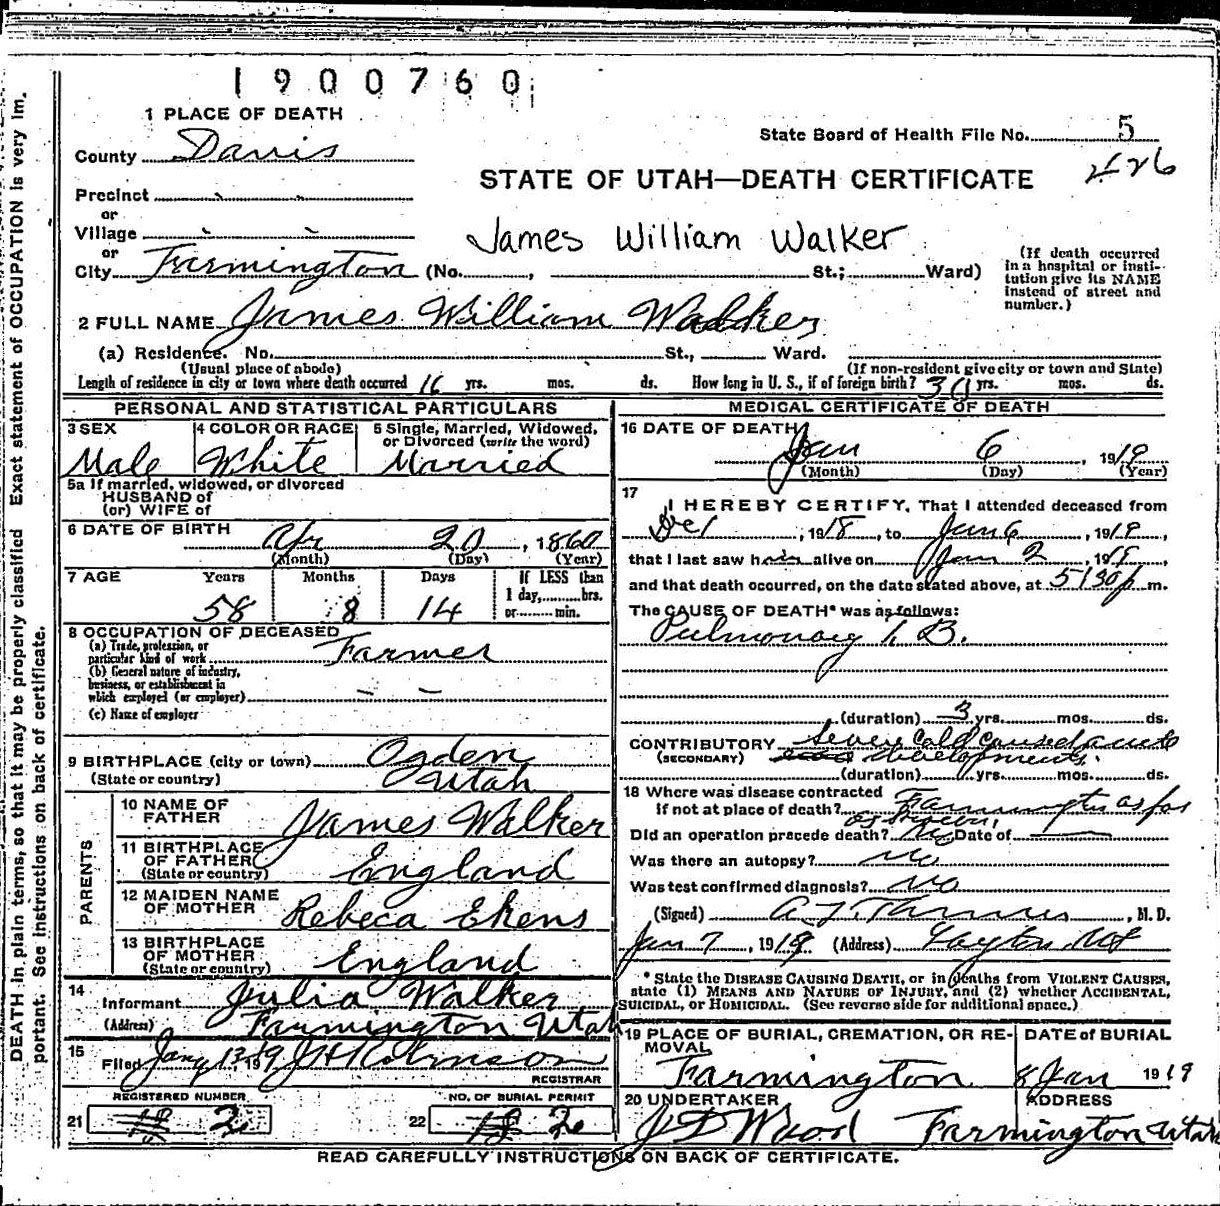 1900760
1 PLACE OF DEATH
State Board of Health File No. 5
County Davis
426
STATE OF UTAH—DEATH CERTIFICATE
Precinct
or
Village
James William Walker
or
City Farmington (No. , St.; Ward)
(If death occurred in a hospital or institution give its NAME instead of street and number.)
2 FULL NAME James William Walker
(a) Residence. No. St., Ward.
(Usual place of abode) (If non-resident give city or town and State)
Length of residence in city or town where death occurred 16 yrs. mos. ds. How long in U. S., if of foreign birth? yrs. mos. ds.
PERSONAL AND STATISTICAL PARTICULARS
3 SEX 4 COLOR OR RACE 5 Single, Married, Widowed, or Divorced (write the word)
Male White Married
5a If married, widowed, or divorced
HUSBAND of
(or) WIFE of
6 DATE OF BIRTH
Apr 20, 1860
(Month) (Day) (Year)
7 AGE Years Months Days If LESS than
1 day, hrs.
58 8 14 or min.
8 OCCUPATION OF DECEASED
(a) Trade, profession, or
particular kind of work Farmer
(b) General nature of industry,
business, or establishment in
which employed (or employer) — —
(c) Name of employer
9 BIRTHPLACE (city or town) Ogden
(State or country) Utah
PARENTS
10 NAME OF
FATHER James Walker
11 BIRTHPLACE
OF FATHER
(State or country) England
12 MAIDEN NAME
OF MOTHER Rebeca Ekens
13 BIRTHPLACE
OF MOTHER
(State or country) England
14
Informant Julia Walker
(Address) Farmington Utah
15
Filed Jany 13, 1919 J H Robinson
REGISTRAR
REGISTERED NUMBER NO. OF BURIAL PERMIT
21 2 22 2
MEDICAL CERTIFICATE OF DEATH
16 DATE OF DEATH
Jan 6, 1919
(Month) (Day) (Year)
17
I HEREBY CERTIFY, That I attended deceased from
, 1918, to Jan 6, 1919,
that I last saw him alive on Jan 2, 1919,
and that death occurred, on the date stated above, at 5:30 p.m.
The CAUSE OF DEATH* was as follows:
Pulmonary T. B.
(duration) 3 yrs. mos. ds.
CONTRIBUTORY Severe Cold caused acute
(SECONDARY) developments.
(duration) yrs. mos. ds.
18 Where was disease contracted
if not at place of death? Farmington as far
as known.
Did an operation precede death? No Date of
Was there an autopsy? No
Was test confirmed diagnosis? No
(Signed) , M. D.
Jan 7, 1919 (Address) Layton Ut
* State the DISEASE CAUSING DEATH, or in deaths from VIOLENT CAUSES,
state (1) MEANS AND NATURE OF INJURY, and (2) whether ACCIDENTAL,
SUICIDAL, or HOMICIDAL. (See reverse side for additional space.)
19 PLACE OF BURIAL, CREMATION, OR RE- DATE of BURIAL
MOVAL
Farmington 8 Jan 1919
20 UNDERTAKER ADDRESS
J D Wood Farmington Utah
READ CAREFULLY INSTRUCTIONS ON BACK OF CERTIFICATE.
DEATH in plain terms, so that it may be properly classified Exact statement of OCCUPATION is very im.
portant. See instructions on back of certificate.